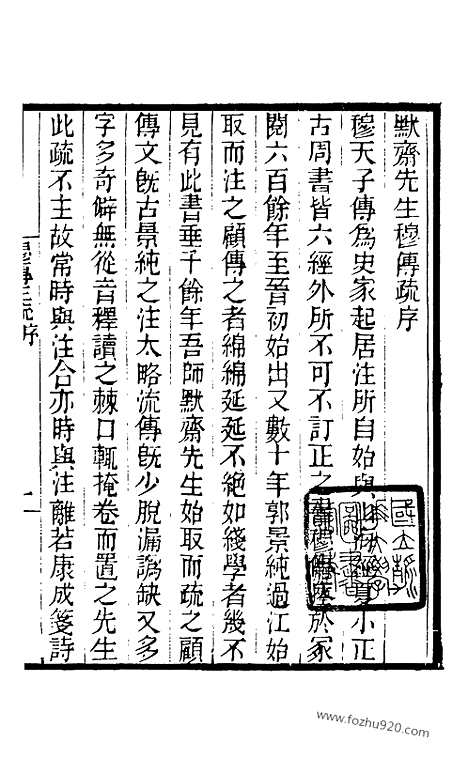 默齋先生穆傳疏序
穆天子傳爲史家起居注所自始與山海經夏小正
古周書皆六經外所不可不訂正之書穆傳於冢
閟六百餘年至晉初始出又數十年郭景純過江始
取而注之顧傳之者綿綿延延不絕如綫學者幾不
見有此書垂千餘年吾師默齋先生始取而疏之顧
傳文旣古景純之注太略流傳旣少脫漏譌缺又多
字多奇僻無從音釋讀之棘口輒掩卷而置之先生
此疏不主故常時與注合亦時與注離若康成箋詩
穆傳疏序
一
國立
www.fozhu920.com